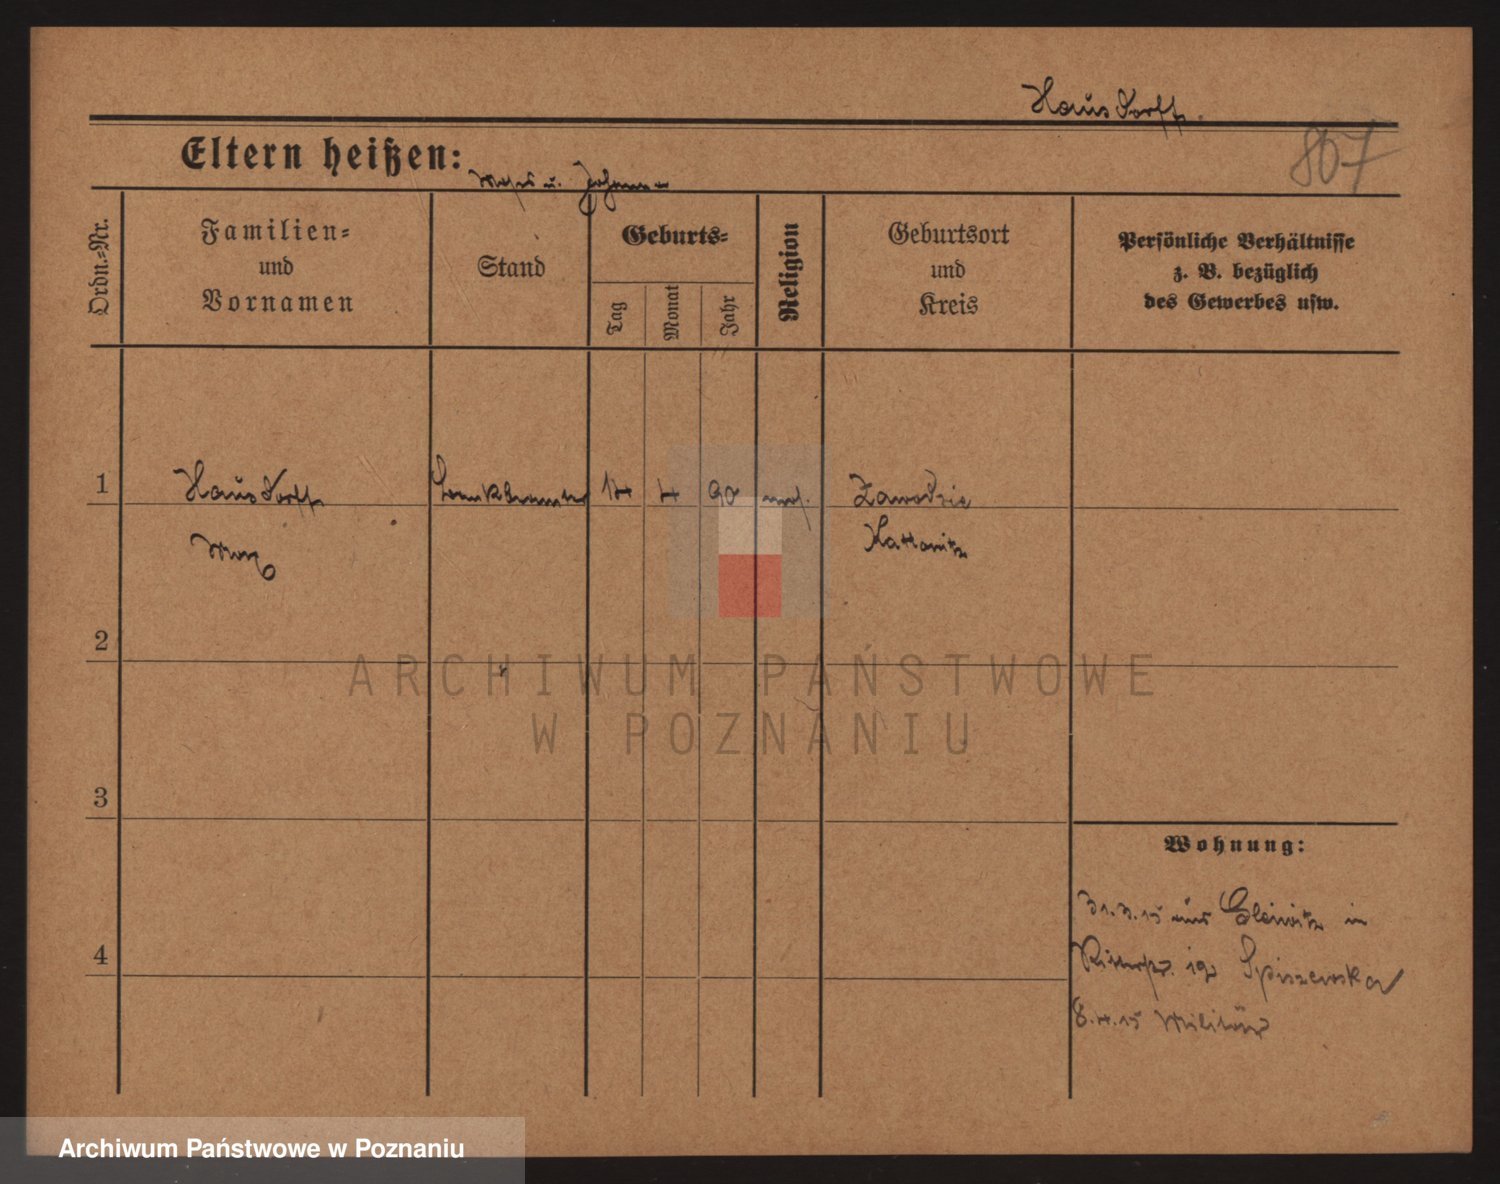 Hausdorff.
807
Eltern heißen:
u. Johanna
Ordn.-Nr.
Familien-
und
Vornamen
Stand
Geburts-
Tag
Monat
Jahr
Religion
Geburtsort
und
Kreis
Persönliche Verhältnisse
z. B. bezüglich
des Gewerbes usw.
1
Hausdorff
Bankbeamter
14
4
90
mos.
Zawodzie
Max
Kattowitz
2
3
4
Wohnung:
31.3.15 aus Gleiwitz in
Ritterstr. 19 Spiszewska
8.4.15 Militär
ARCHIWUM PAŃSTWOWE
W POZNANIU
Archiwum Państwowe w Poznaniu